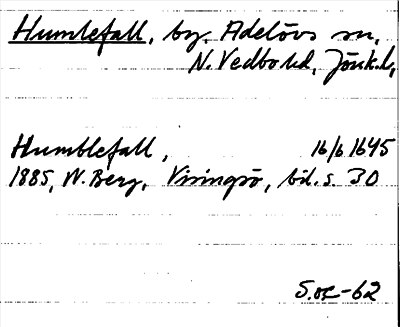 Humlefall, by. Adelövs sn,
N. Vedbo hd, Jönk. l,
Humblefall, 16/6 1645
1885, W. Berg, Visingsö, bil. s. 30
S.oc-62